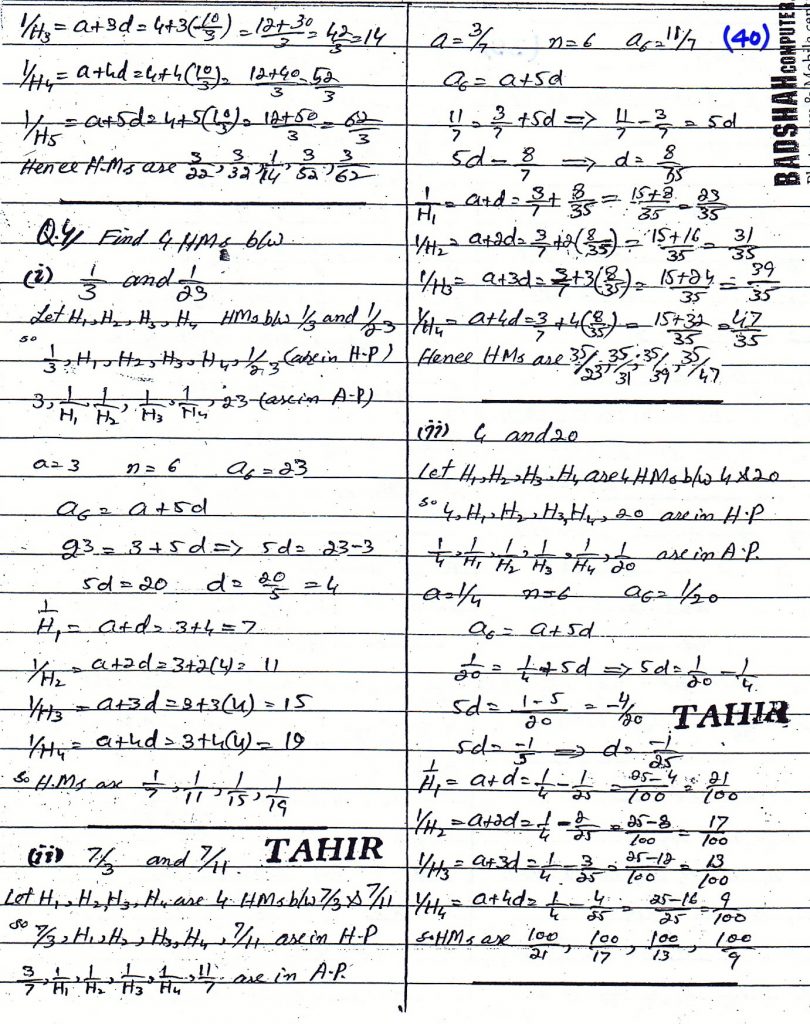 1/H3 = a+3d = 4+3(10/3) = 12+30/3 = 42/3 = 14
1/H4 = a+4d = 4+4(10/3) = 12+40/3 = 52/3
1/H5 = a+5d = 4+5(10/3) = 12+50/3 = 62/3
Hence H.Ms are 3/22, 3/32, 1/14, 3/52, 3/62
Q.4/ Find 4 HMs b/w
(i) 1/3 and 1/23
Let H1, H2, H3, H4 HMs b/w 1/3 and 1/23
so
1/3, H1, H2, H3, H4, 1/23 (are in H.P)
3, 1/H1, 1/H2, 1/H3, 1/H4, 23 (are in A.P)
a=3 n=6 a6=23
a6 = a+5d
23 = 3+5d => 5d = 23-3
5d = 20 d = 20/5 = 4
1/H1 = a+d = 3+4 = 7
1/H2 = a+2d = 3+2(4) = 11
1/H3 = a+3d = 3+3(4) = 15
1/H4 = a+4d = 3+4(4) = 19
so H.Ms are 1/7, 1/11, 1/15, 1/19
(ii) 7/3 and 7/11 TAHIR
Let H1, H2, H3, H4 are 4 HMs b/w 7/3 & 7/11
so 7/3, H1, H2, H3, H4, 7/11 are in H.P
3/7, 1/H1, 1/H2, 1/H3, 1/H4, 11/7 are in A.P.
a = 3/7 n=6 a6 = 11/7 (40)
a6 = a+5d
11/7 = 3/7 + 5d => 11/7 - 3/7 = 5d
5d = 8/7 => d = 8/35
1/H1 = a+d = 3/7 + 8/35 = 15+8/35 = 23/35
1/H2 = a+2d = 3/7 + 2(8/35) = 15+16/35 = 31/35
1/H3 = a+3d = 3/7 + 3(8/35) = 15+24/35 = 39/35
1/H4 = a+4d = 3/7 + 4(8/35) = 15+32/35 = 47/35
Hence HMs are 35/23, 35/31, 35/39, 35/47
(iii) 4 and 20
Let H1, H2, H3, H4 are 4 HMs b/w 4 & 20
so 4, H1, H2, H3, H4, 20 are in H.P
1/4, 1/H1, 1/H2, 1/H3, 1/H4, 1/20 are in A.P.
a=1/4 n=6 a6=1/20
a6 = a+5d
1/20 = 1/4 + 5d => 5d = 1/20 - 1/4
5d = 1-5/20 = -4/20 TAHIR
5d = -1/5 => d = -1/25
1/H1 = a+d = 1/4 - 1/25 = 25-4/100 = 21/100
1/H2 = a+2d = 1/4 - 2/25 = 25-8/100 = 17/100
1/H3 = a+3d = 1/4 - 3/25 = 25-12/100 = 13/100
1/H4 = a+4d = 1/4 - 4/25 = 25-16/25 = 9/100
so HMs are 100/21, 100/17, 100/13, 100/9
BADSHAH COMPUTER